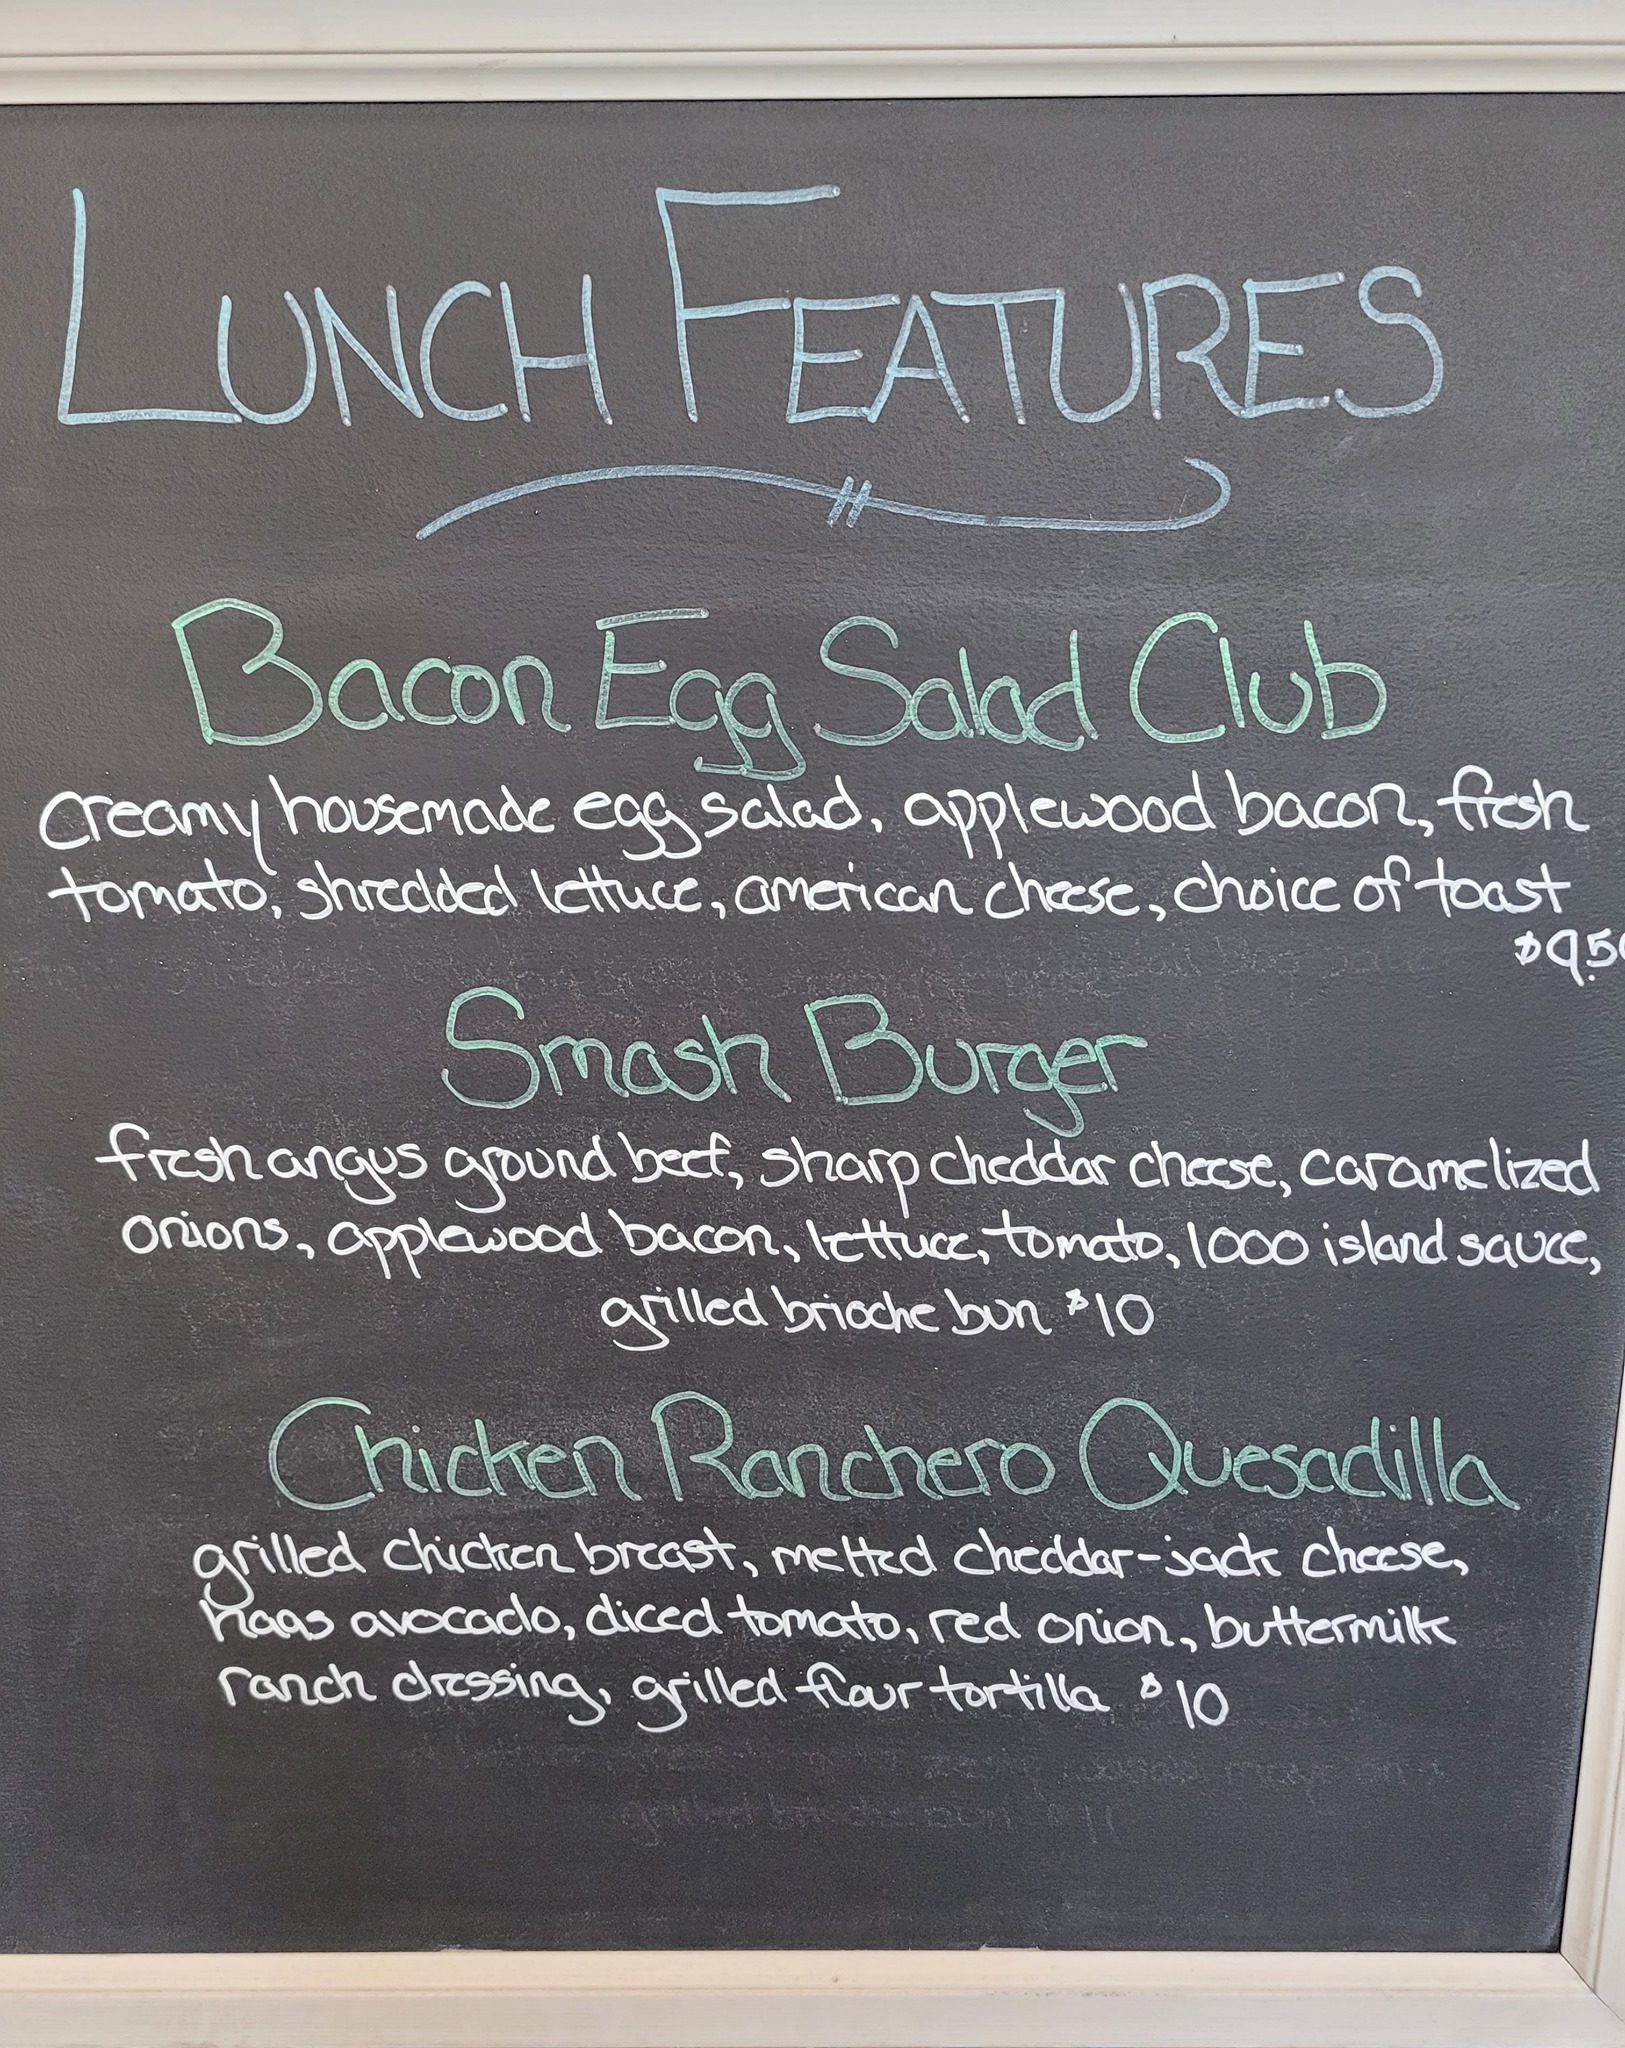 LUNCH FEATURES
Bacon Egg Salad Club
creamy housemade egg salad, applewood bacon, fresh
tomato, shredded lettuce, american cheese, choice of toast
$9.50
Smash Burger
fresh angus ground beef, sharp cheddar cheese, caramelized
onions, applewood bacon, lettuce, tomato, 1000 island sauce,
grilled brioche bun $10
Chicken Ranchero Quesadilla
grilled chicken breast, melted cheddar-jack cheese,
haas avocado, diced tomato, red onion, buttermilk
ranch dressing, grilled flour tortilla $10